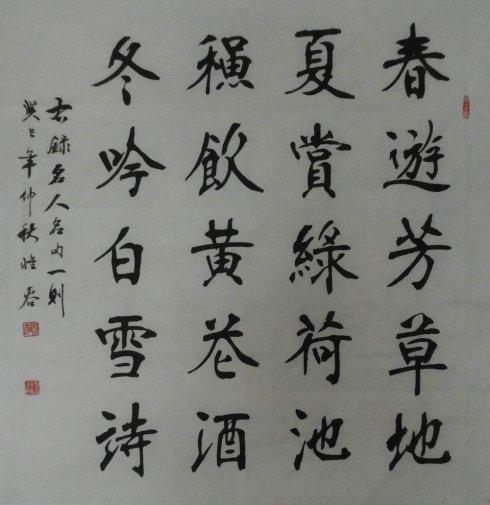 春遊芳草地
夏賞綠荷池
穐飲黃花酒
冬吟白雪詩
右錄名人名句一則
癸巳年仲秋